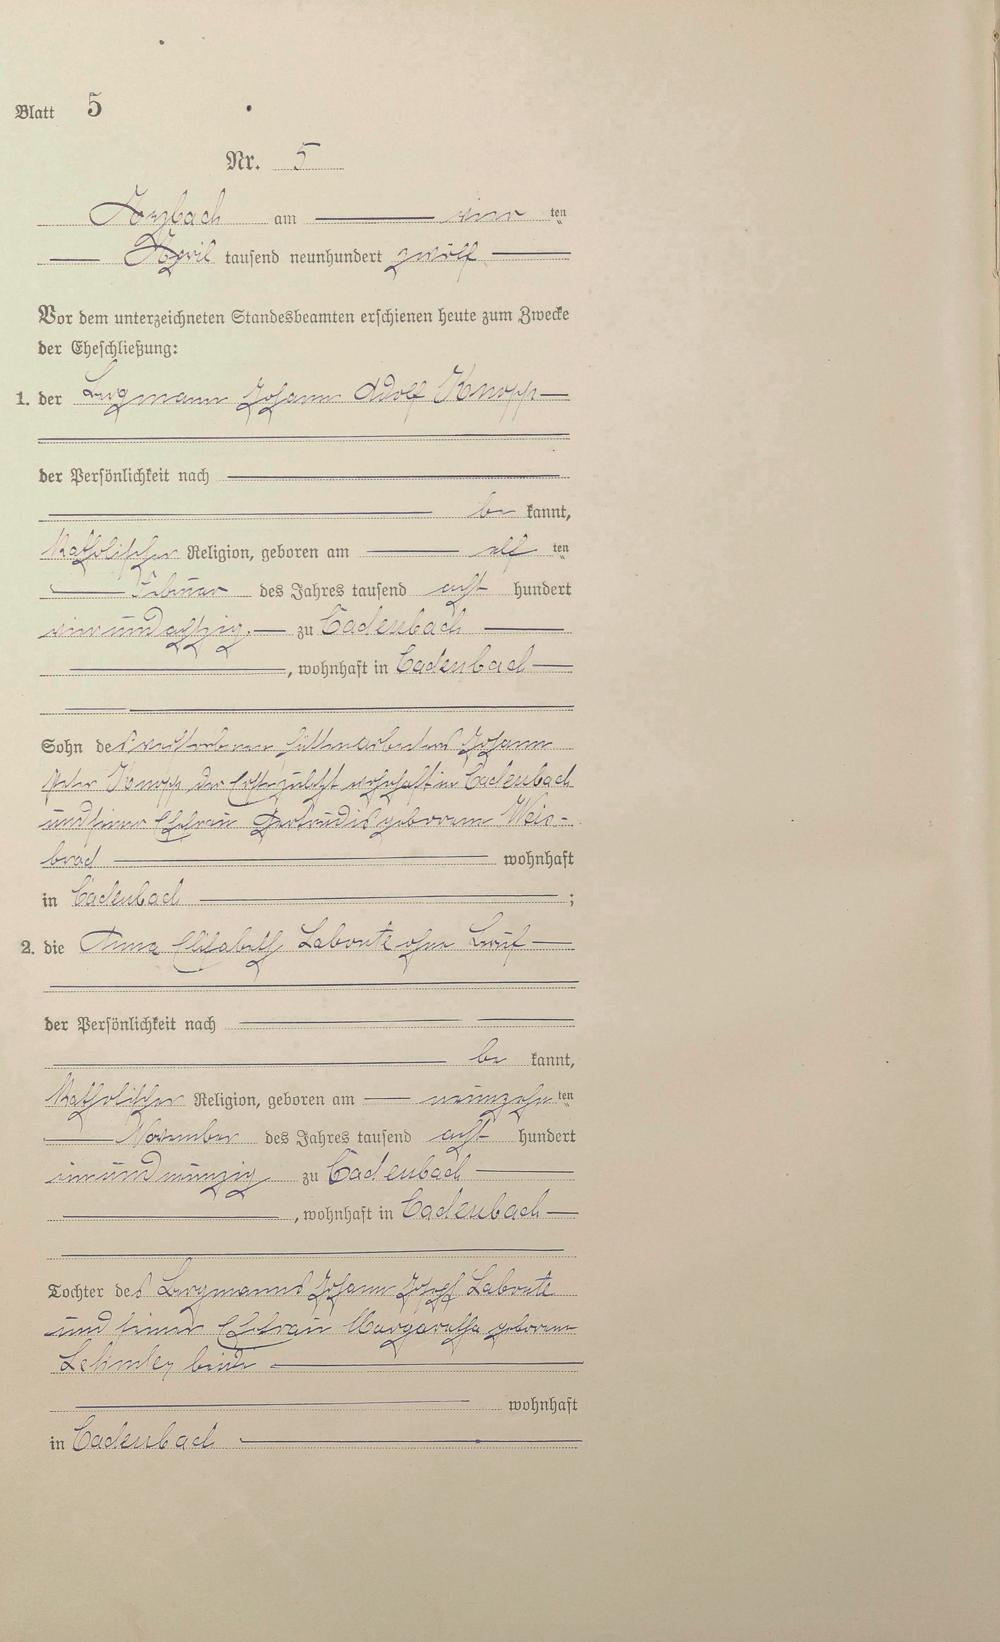 Blatt 5
Nr. 5
Arzbach am vier ten
April tausend neunhundert zwölf
Vor dem unterzeichneten Standesbeamten erschienen heute zum Zwecke
der Eheschließung:
1. der Bergmann Johann Adolf Knopp
der Persönlichkeit nach
be kannt,
katholischer Religion, geboren am elf ten
Februar des Jahres tausend acht hundert
vierundachtzig. zu Cadenbach
, wohnhaft in Cadenbach
Sohn des verstorbenen Hüttenarbeiters Johann
Peter Knopp der Erste zuletzt wohnhaft in Cadenbach
und seiner Ehefrau Gertrudis geborene Weis-
brod wohnhaft
in Cadenbach ;
2. die Anna Elisabeth Labonte ohne Beruf
der Persönlichkeit nach
be kannt,
katholischer Religion, geboren am neunzehn ten
November des Jahres tausend acht hundert
einundneunzig zu Cadenbach
, wohnhaft in Cadenbach
Tochter des Bergmanns Johann Josef Labonte
und seiner Ehefrau Margaretha geborene
beide
wohnhaft
in Cadenbach